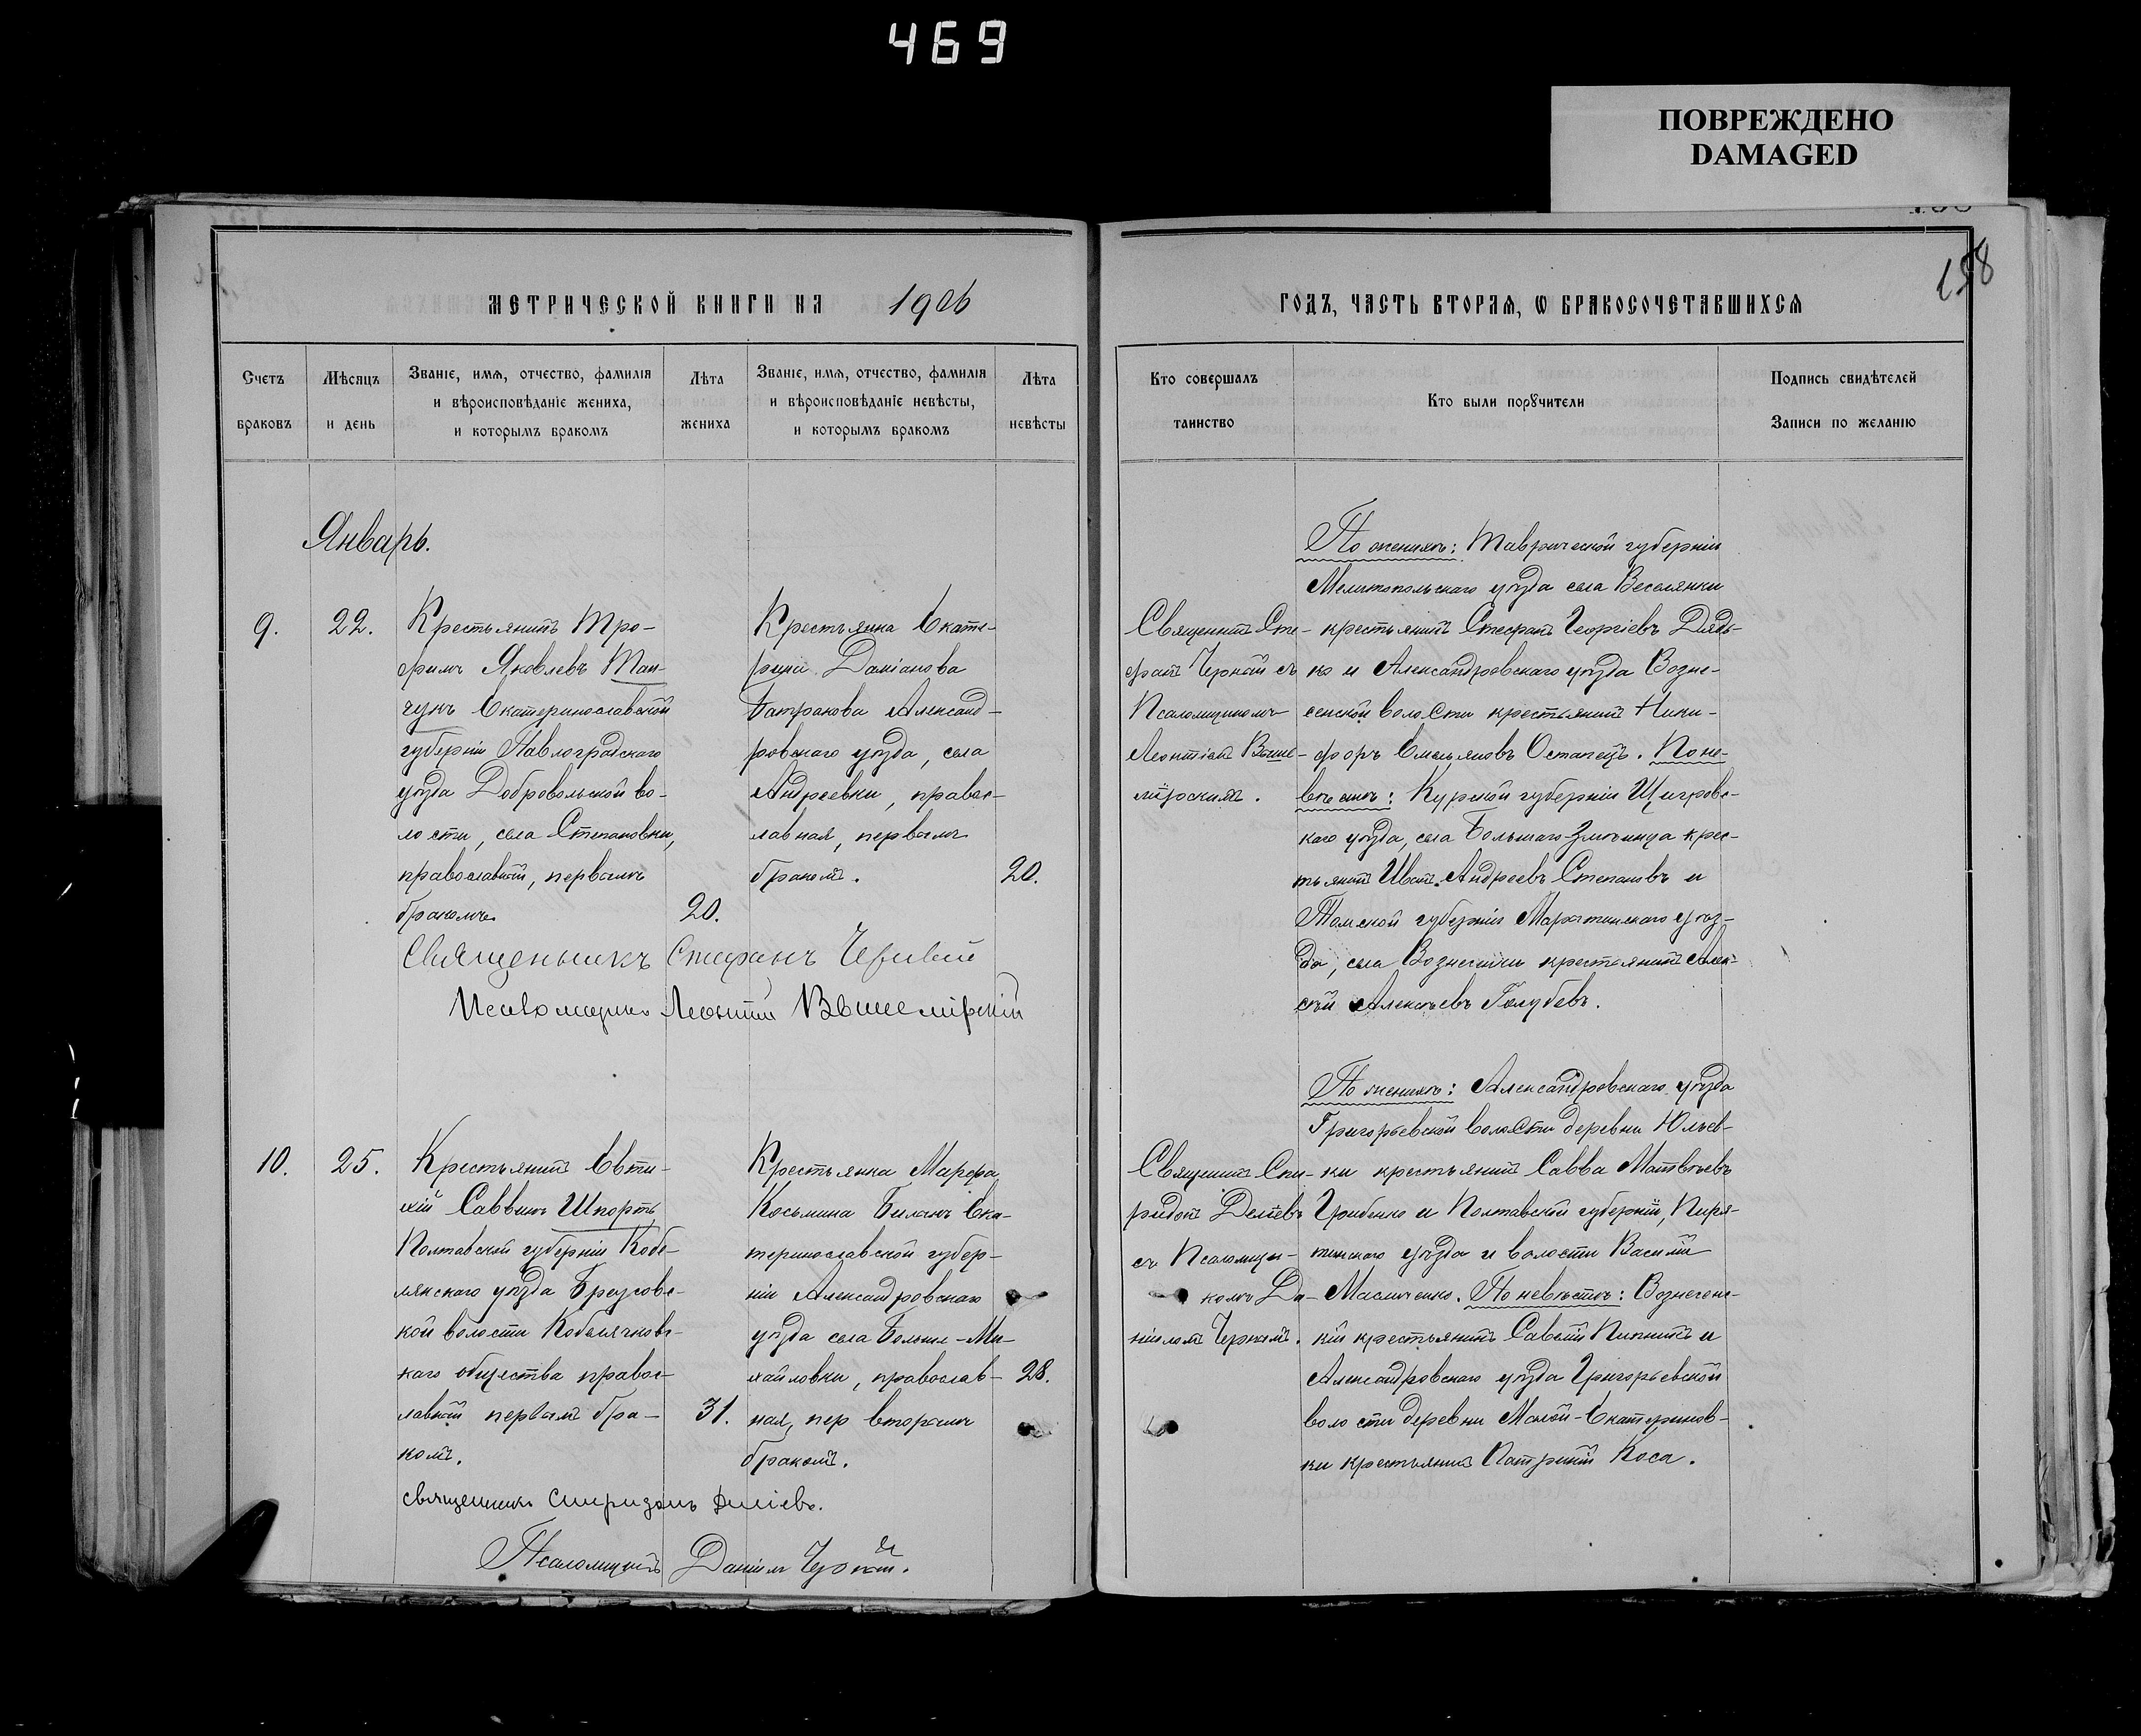 469
ПОВРЕЖДЕНО
DAMAGED
158
МЕТРИЧЕСКОЙ КНИГИ НА 1906
ГОДЪ, ЧАСТЬ ВТОРАЯ, Ѡ БРАКОСОЧЕТАВШИХСЯ
Счетъ
браковъ
Мѣсяцъ
и день
Званіе, имя, отчество, фамилія
и вѣроисповѣданіе жениха,
и которымъ бракомъ
Лѣта
жениха
Званіе, имя, отчество, фамилія
и вѣроисповѣданіе невѣсты,
и которымъ бракомъ
Лѣта
невѣсты
Кто совершалъ
таинство
Кто были порꙋчители
Подпись свидѣтелей
Записи по желанію
Январь.
9.
22.
Крестьянинъ Тро-
фимъ Яковлевъ
Екатеринославской
губерніи Павлоградскаго
уѣзда Добровольской во-
лости, села Степановки,
православный, первымъ
бракомъ
20.
Крестьянка Екате-
рина Даміанова
Батракова Александ-
ровскаго уѣзда, села
Андреевки, правос-
лавная, первымъ
бракомъ.
20.
Священникъ Стефанъ
Псаломщикъ Леонтій Вышемірскій
Священникъ Сте-
фанъ Черный съ
Псаломщикомъ
Леонтіемъ Выше-
мірскимъ.
По женихѣ: Таврической губерніи
Мелитопольскаго уѣзда села Веселянки
крестьянинъ Стефанъ Георгіевъ Дядь-
ко и Александровскаго уѣзда Возне-
сенской волости крестьянинъ Ники-
форъ Емельяновъ Остапецъ. По не-
вѣстѣ: Курской губерніи Щигровс-
каго уѣзда, села Большаго Змѣинца крес-
тьянинъ Иванъ Андреевъ Степановъ и
Томской губерніи Маріинскаго уѣз-
да, села Вознесенки крестьянинъ Алек-
сѣй Алексѣевъ Голубевъ.
10.
25.
Крестьянинъ Евти-
хій Саввинъ Шпортъ
Полтавской губерніи Кобе-
лякскаго уѣзда Бреусовс-
кой волости Кобелячковс-
каго общества правос-
лавный первымъ бра-
комъ.
31.
Крестьянка Марфа
Косьмина Биланъ Ека-
теринославской губер-
ніи Александровскаго
уѣзда села Больше-Ми-
хайловки, православ-
ная, пер вторымъ
бракомъ.
28.
священникъ Спиридонъ Деліевъ.
Псаломщикъ Даніилъ Черный.
Священникъ Спи-
ридонъ Деліевъ
съ Псаломщи-
комъ Да-
ніиломъ Чернымъ.
По женихѣ: Александровскаго уѣзда
Григорьевской волости деревни Юльев-
ки крестьянинъ Савва Матвѣевъ
Грибенко и Полтавской губерніи, Пиря-
тинскаго уѣзда и волости Василій
Масличенко. По невѣстѣ: Вознесенс-
кій крестьянинъ Савелій и
Александровскаго уѣзда Григорьевской
волости деревни Малой-Екатеринов-
ки крестьянинъ Патрикій Коса.